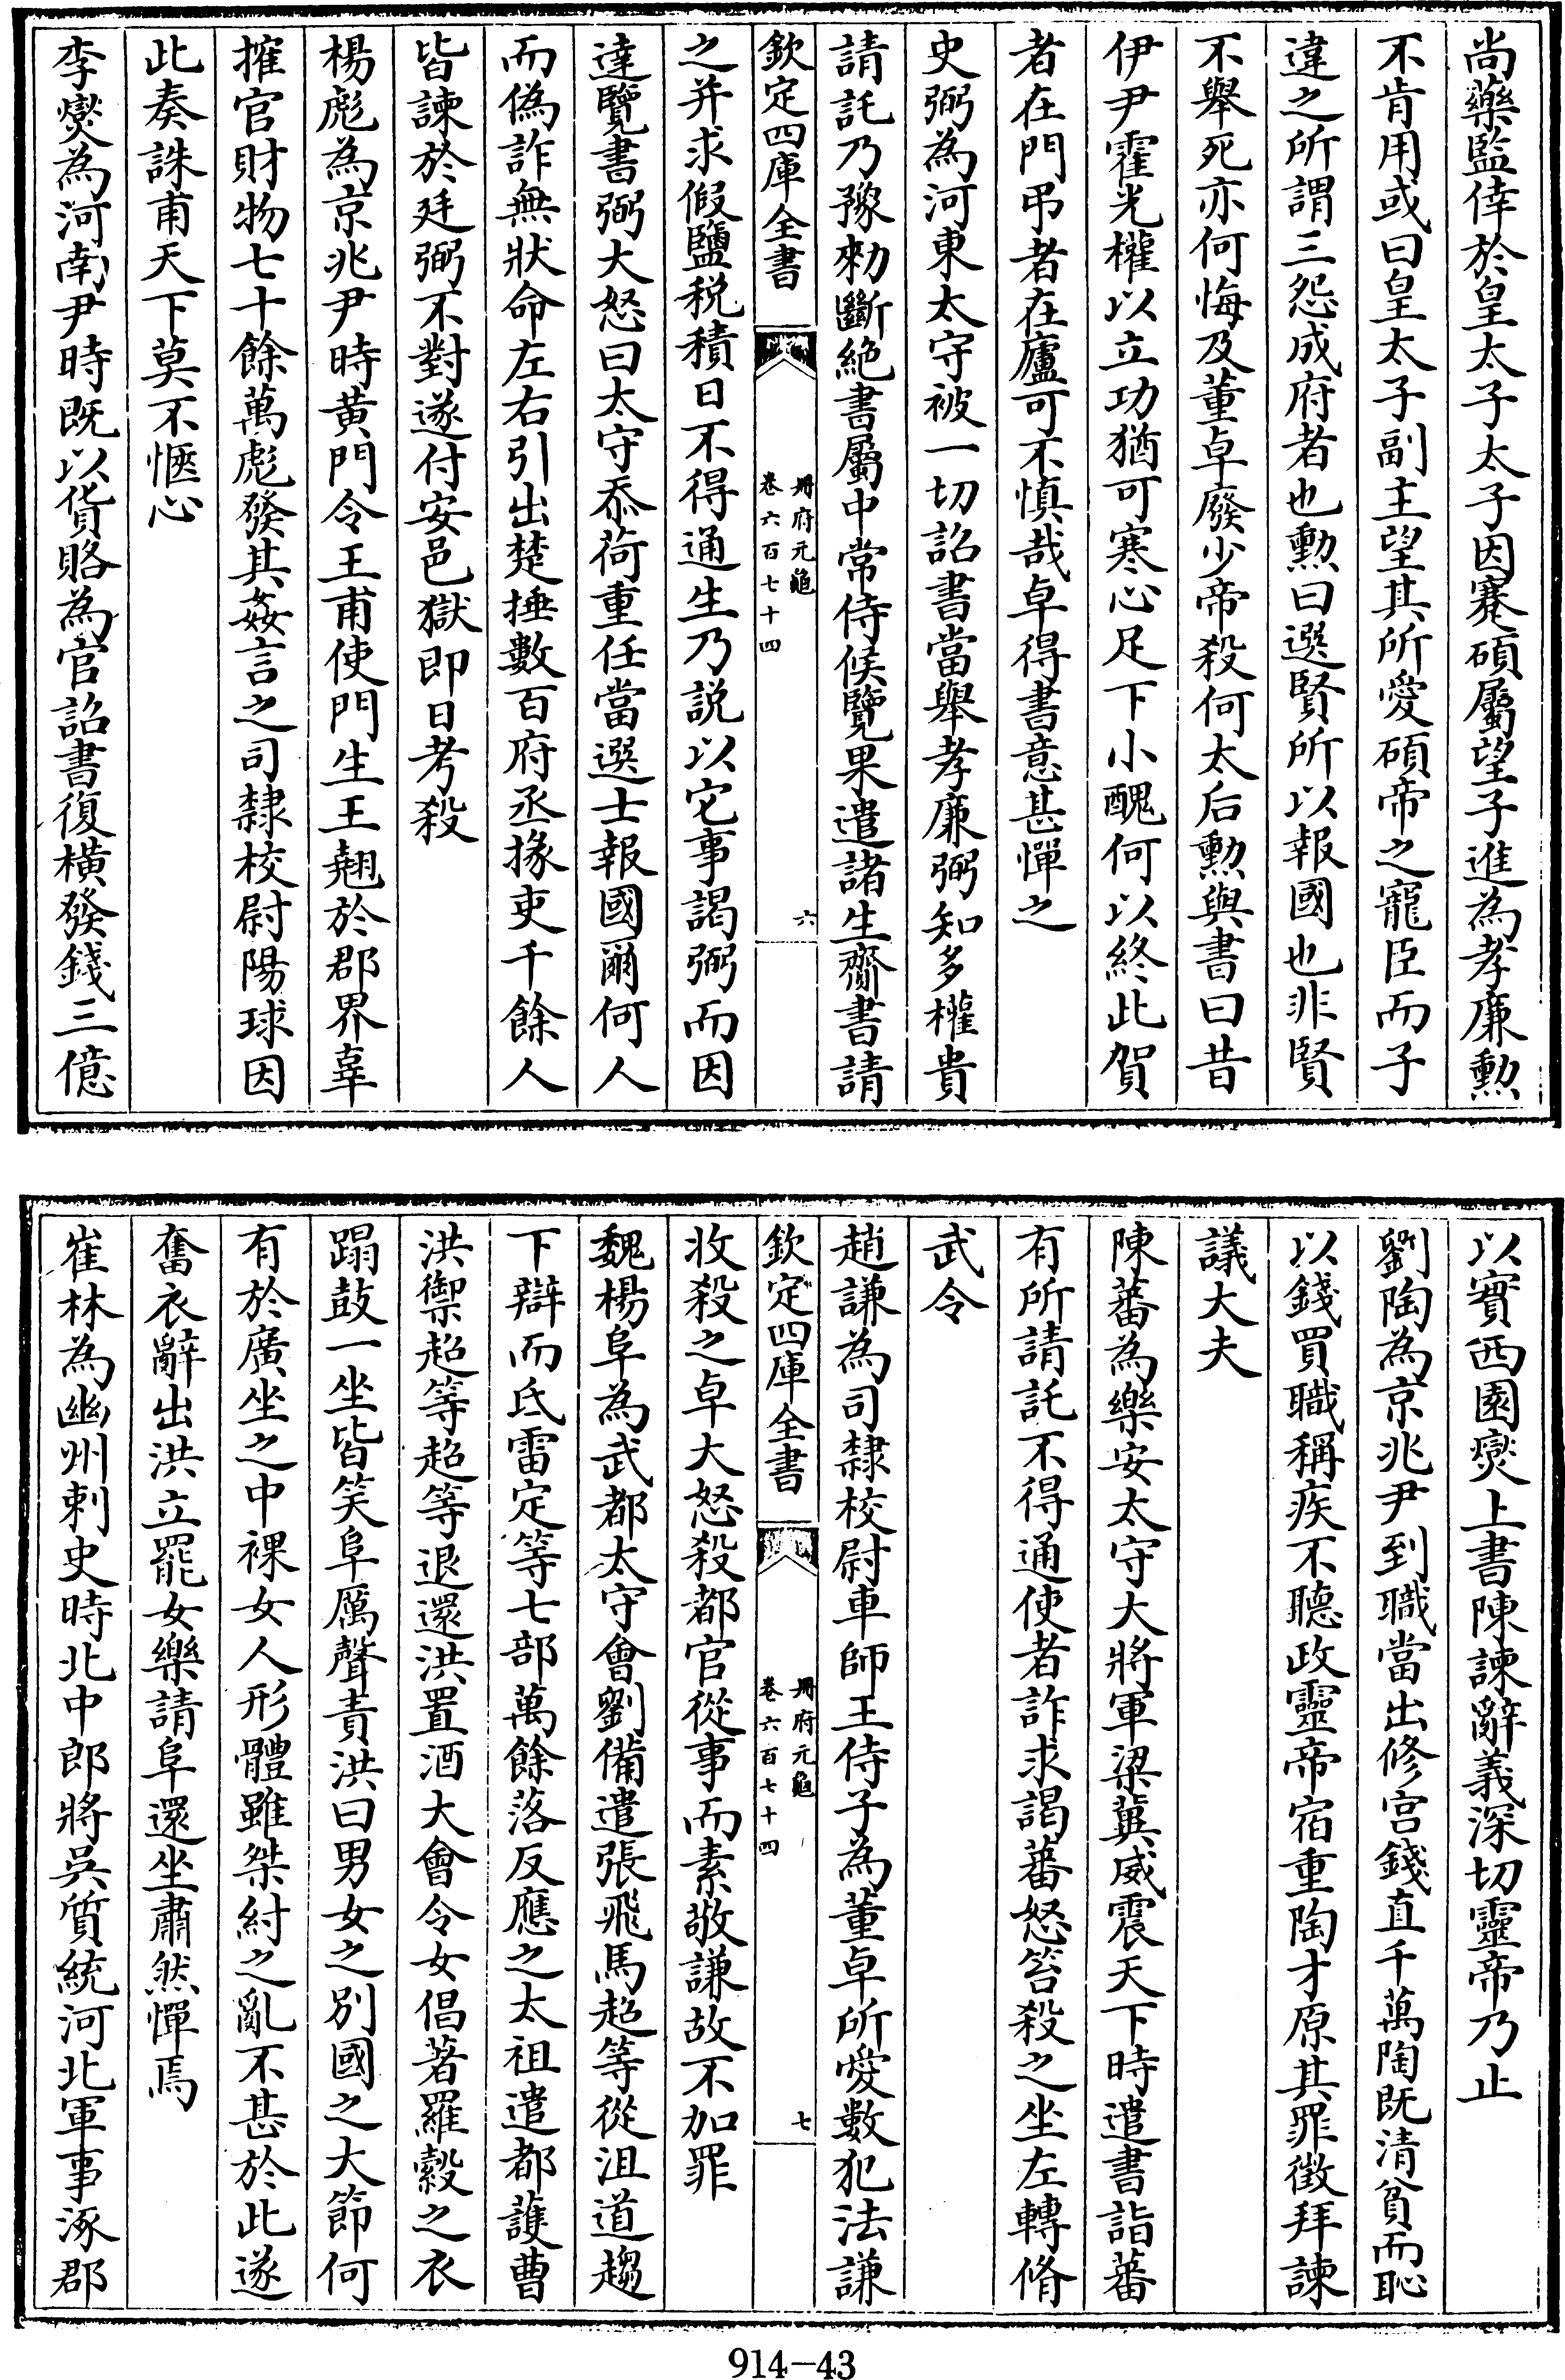 尚藥監倖於皇太子太子因蹇碩屬望子進為孝廉勲
不肯用或曰皇太子副主望其所愛碩帝之寵臣而子
違之所謂三怨成府者也勲曰選賢所以報國也非賢
不舉死亦何悔及董卓廢少帝殺何太后勲與書曰昔
伊尹霍光權以立功猶可寒心足下小醜何以終此賀
者在門弔者在廬可不慎哉卓得書意甚憚之
史弼為河東太守被一切詔書當舉孝廉弼知多權貴
請託乃豫勑斷絶書屬中常侍候覽果遣諸生齎書請
欽定四庫全書
冊府元龜
卷六百七十四
六
之并求假鹽税積日不得通生乃説以它事謁弼而因
達覽書弼大怒曰太守忝荷重任當選士報國爾何人
而偽詐無狀命左右引出楚捶數百府丞掾吏千餘人
皆諫於廷弼不對遂付安邑獄即日考殺
楊彪為京兆尹時黄門令王甫使門生王翹於郡界辜
搉官財物七十餘萬彪發其姦言之司隸校尉陽球因
此奏誅甫天下莫不愜心
李燮為河南尹時既以貨賂為官詔書復横發錢三億
以實西園燮上書陳諫辭義深切靈帝乃止
劉陶為京兆尹到職當出修宫錢直千萬陶既清貧而恥
以錢買職稱疾不聽政靈帝宿重陶才原其罪徵拜諫
議大夫
陳蕃為樂安太守大將軍梁冀威震天下時遣書詣蕃
有所請託不得通使者詐求謁蕃怒笞殺之坐左轉脩
武令
趙謙為司隸校尉車師王侍子為董卓所愛數犯法謙
欽定四庫全書
冊府元龜
卷六百七十四
七
收殺之卓大怒殺都官從事而素敬謙故不加罪
魏楊阜為武都太守會劉備遣張飛馬超等從沮道趨
下辯而氐雷定等七部萬餘落反應之太祖遣都護曹
洪禦超等超等退還洪置酒大會令女倡著羅縠之衣
蹋鼓一坐皆笑阜厲聲責洪曰男女之别國之大節何
有於廣坐之中裸女人形體雖桀紂之亂不甚於此遂
奮衣辭出洪立罷女樂請阜還坐肅然憚焉
崔林為幽州刺史時北中郎將吳質統河北軍事涿郡
914-43